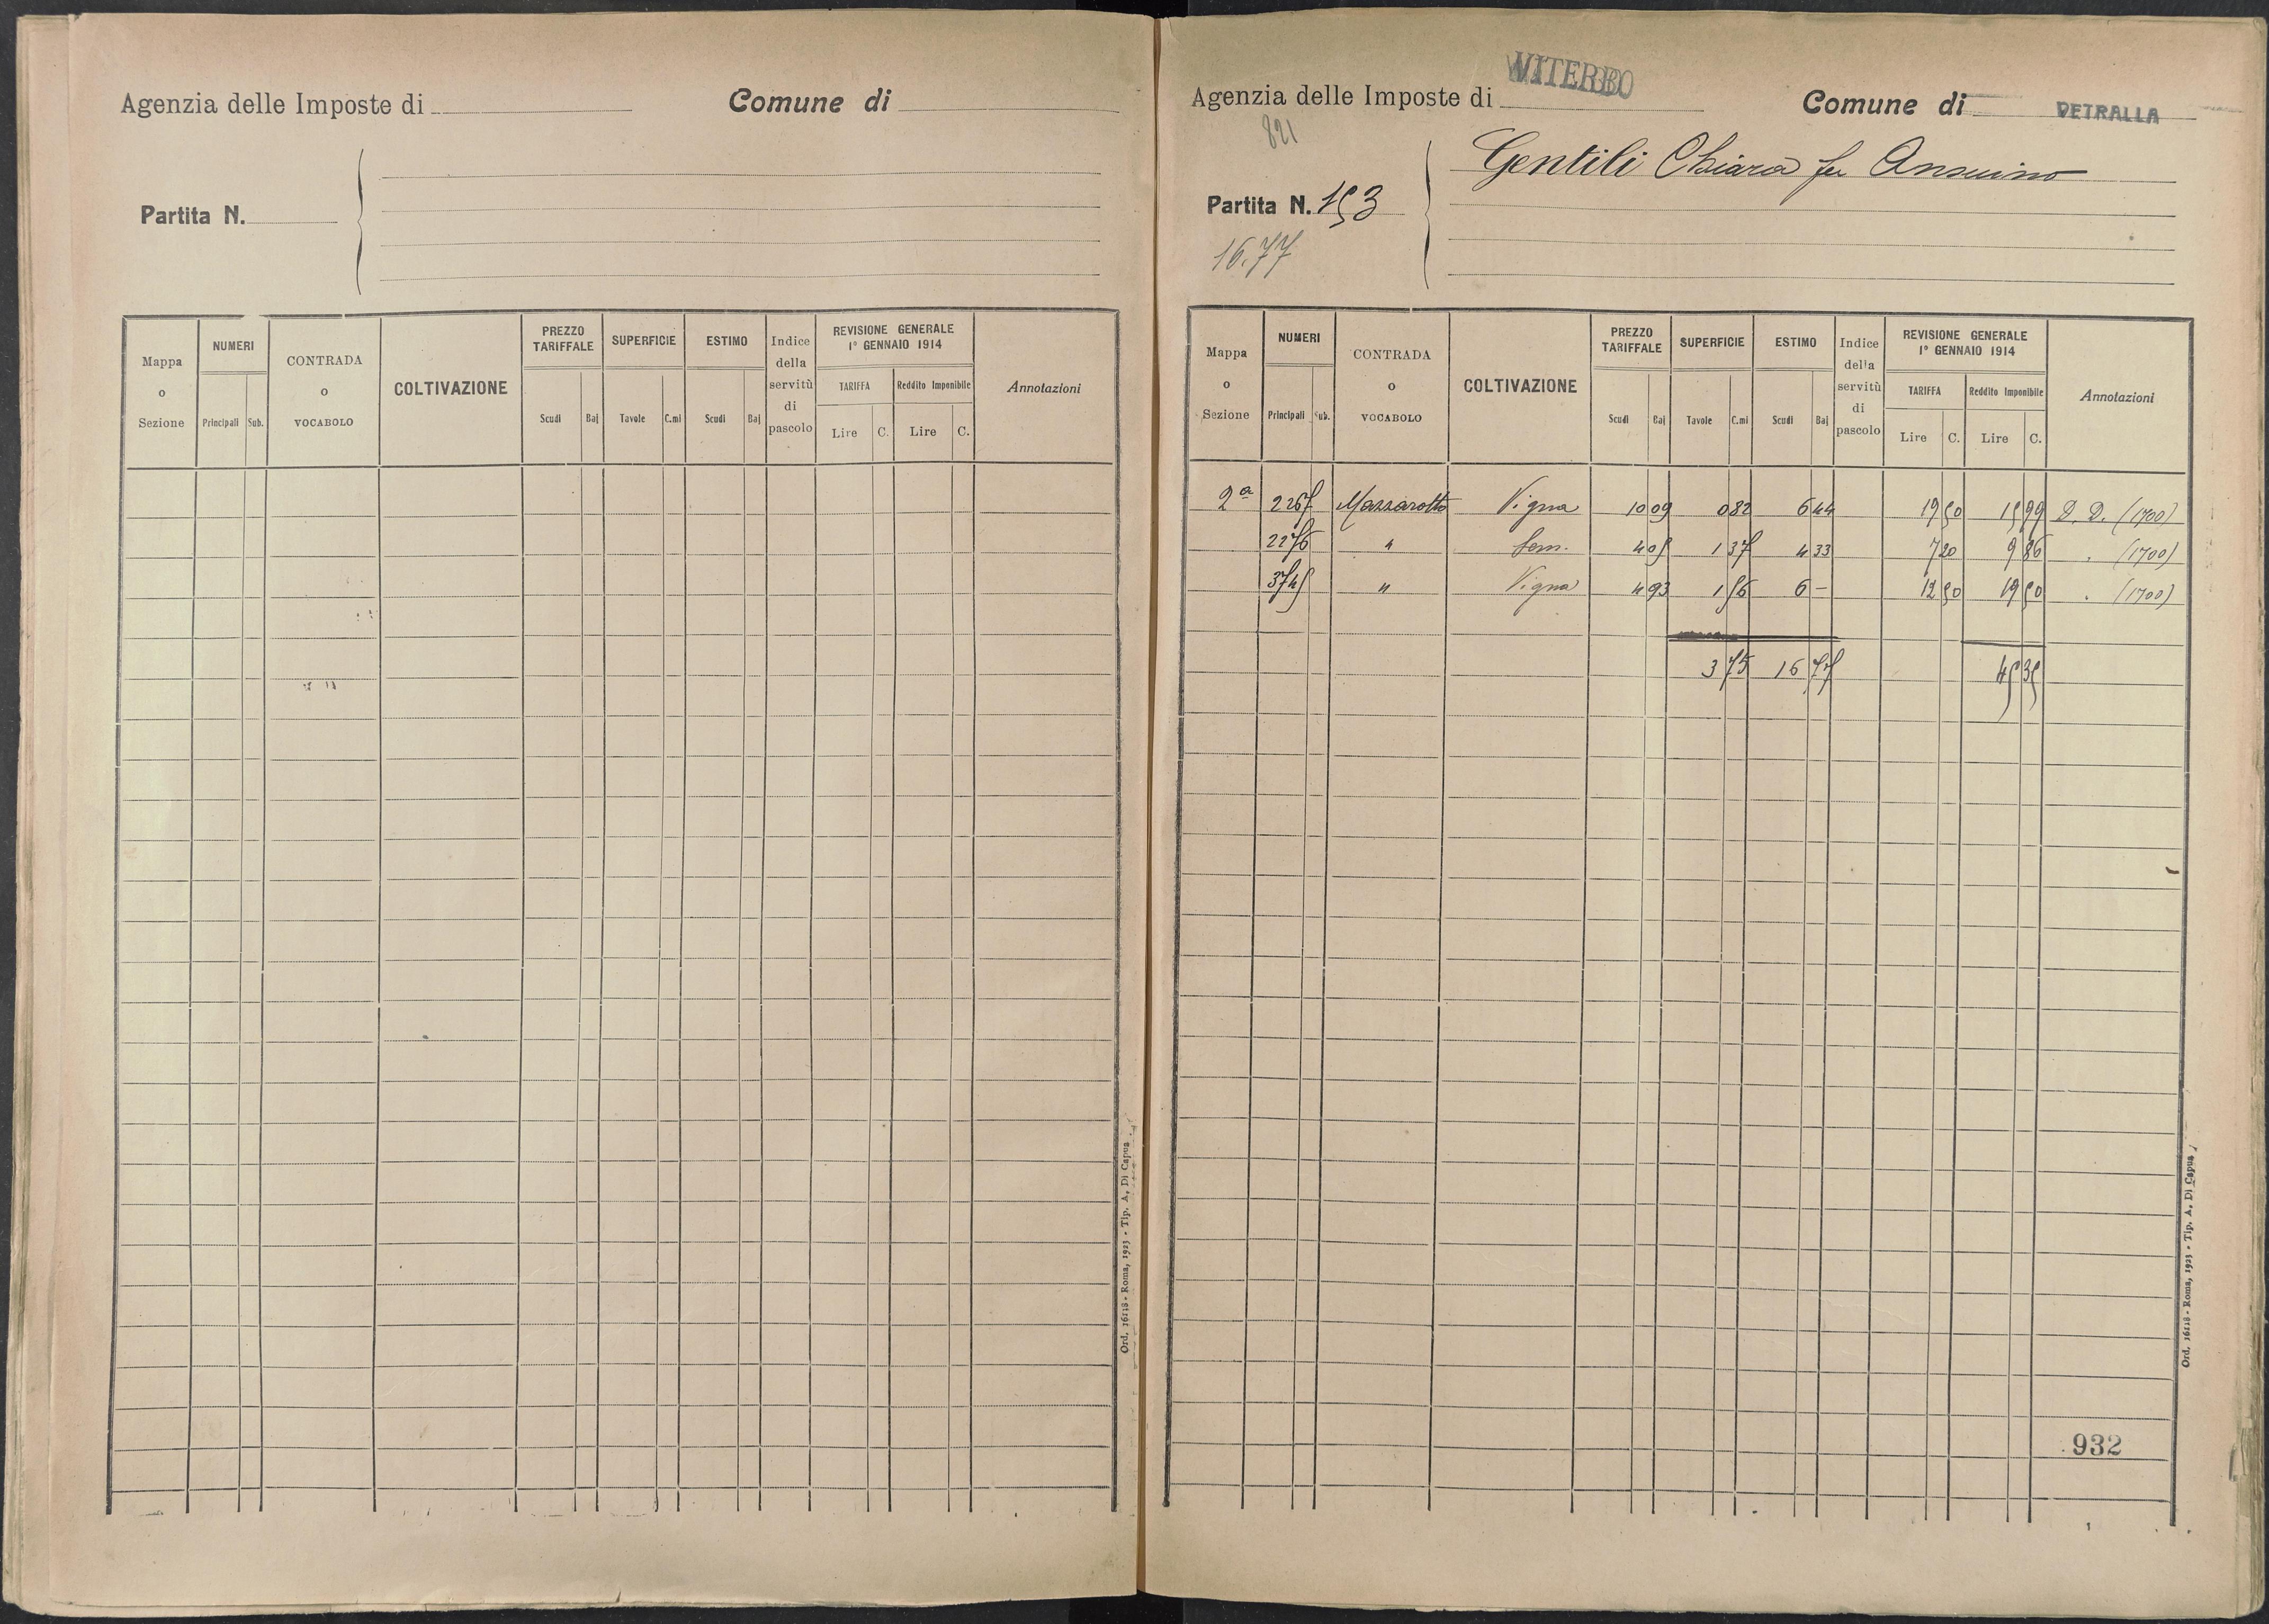 Agenzia delle Imposte di
Comune di
Partita N.
Mappa o Sezione | NUMERI Principali Sub. | CONTRADA o VOCABOLO | COLTIVAZIONE | PREZZO TARIFFALE Scudi Baj | SUPERFICIE Tavole C.mi | ESTIMO Scudi Baj | Indice della servitù di pascolo | REVISIONE GENERALE 1° GENNAIO 1914 TARIFFA Lire C. Reddito Imponibile Lire C. | Annotazioni
Ord. 16118 - Roma, 1923 - Tip. A. Di Capua
Agenzia delle Imposte di VITERBO
Comune di VETRALLA
821
Gentili Chiara fu Ansuino
Partita N. 153
16.77
Mappa o Sezione | NUMERI Principali Sub. | CONTRADA o VOCABOLO | COLTIVAZIONE | PREZZO TARIFFALE Scudi Baj | SUPERFICIE Tavole C.mi | ESTIMO Scudi Baj | Indice della servitù di pascolo | REVISIONE GENERALE 1° GENNAIO 1914 TARIFFA Lire C. Reddito Imponibile Lire C. | Annotazioni
2ª 2267 Mazzarotto Vigna 10 09 0 82 6 44 19 50 15 99 D. D. (1700)
2276 " Sem. 4 05 1 37 4 33 7 20 9 86 . (1700)
3745 " Vigna 4 93 1 56 6 – 12 50 19 50 . (1700)
3 75 16 77 45 35
932
Ord. 16118 - Roma, 1923 - Tip. A. Di Capua